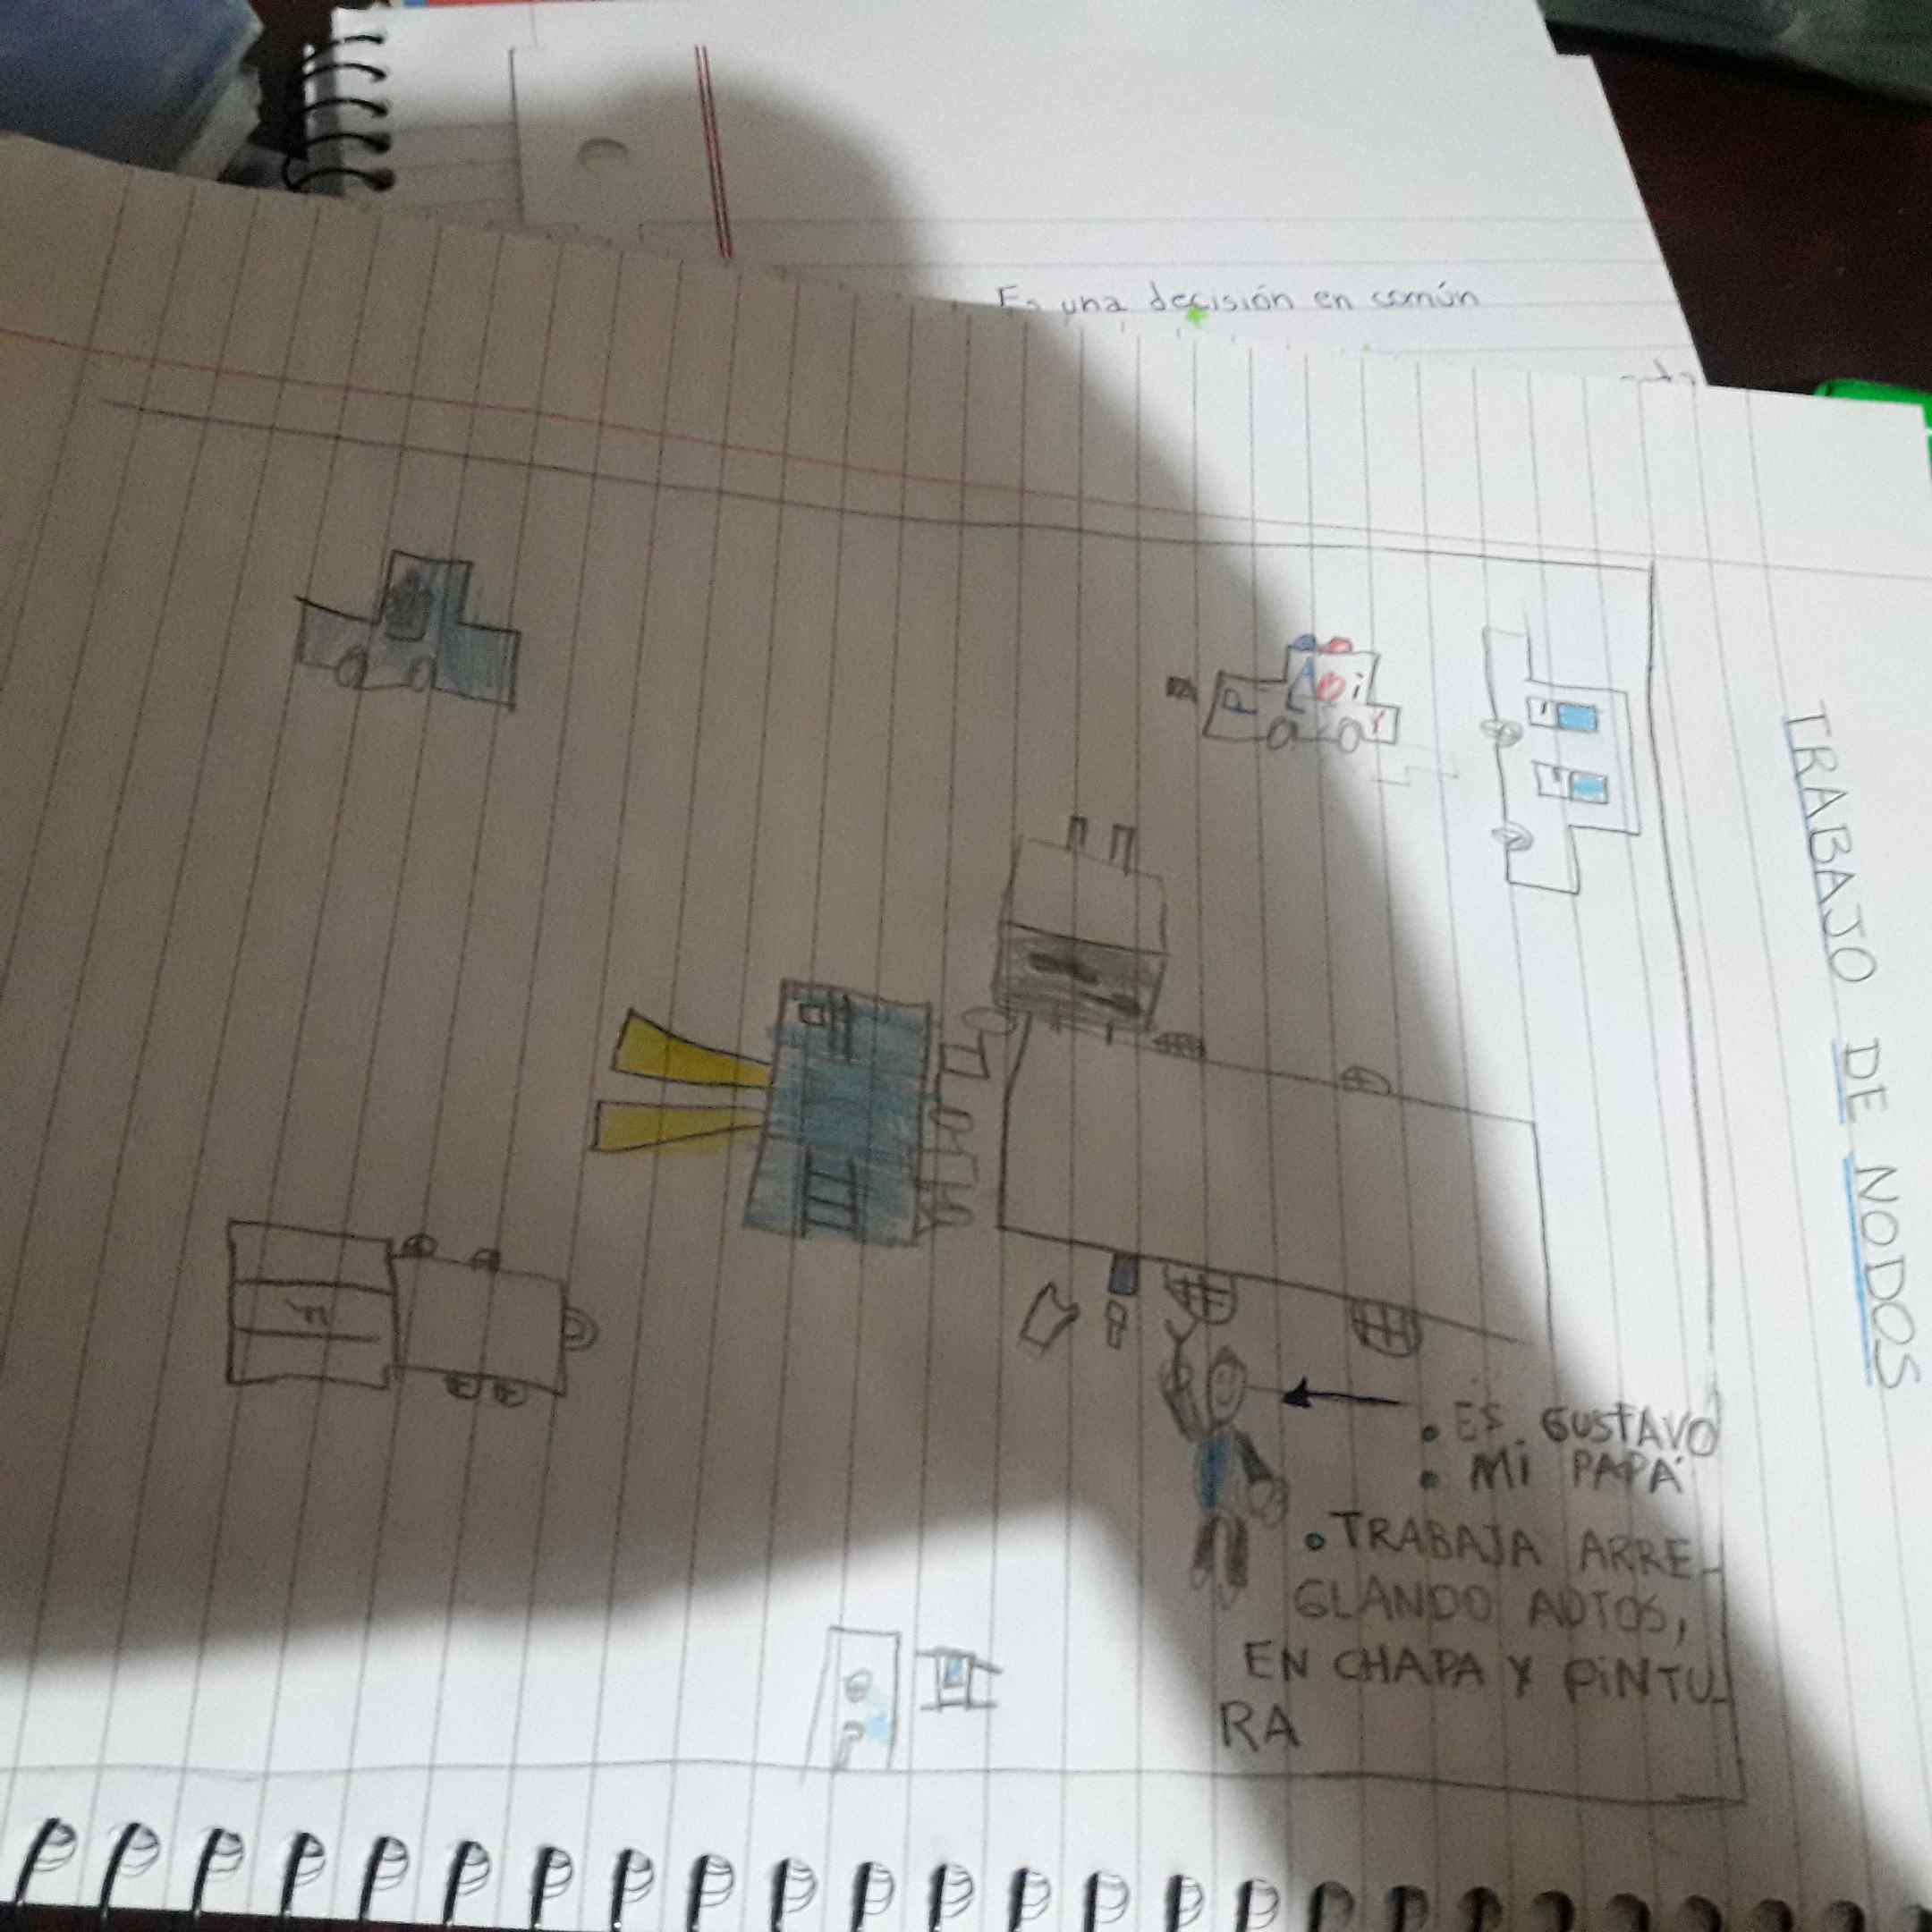 Es una decisión en común
TRABAJO DE NODOS
• ES GUSTAVO
• Mi PAPÁ
• TRABAJA ARRE-
GLANDO AUTOS,
EN CHAPA Y PiNTU-
RA